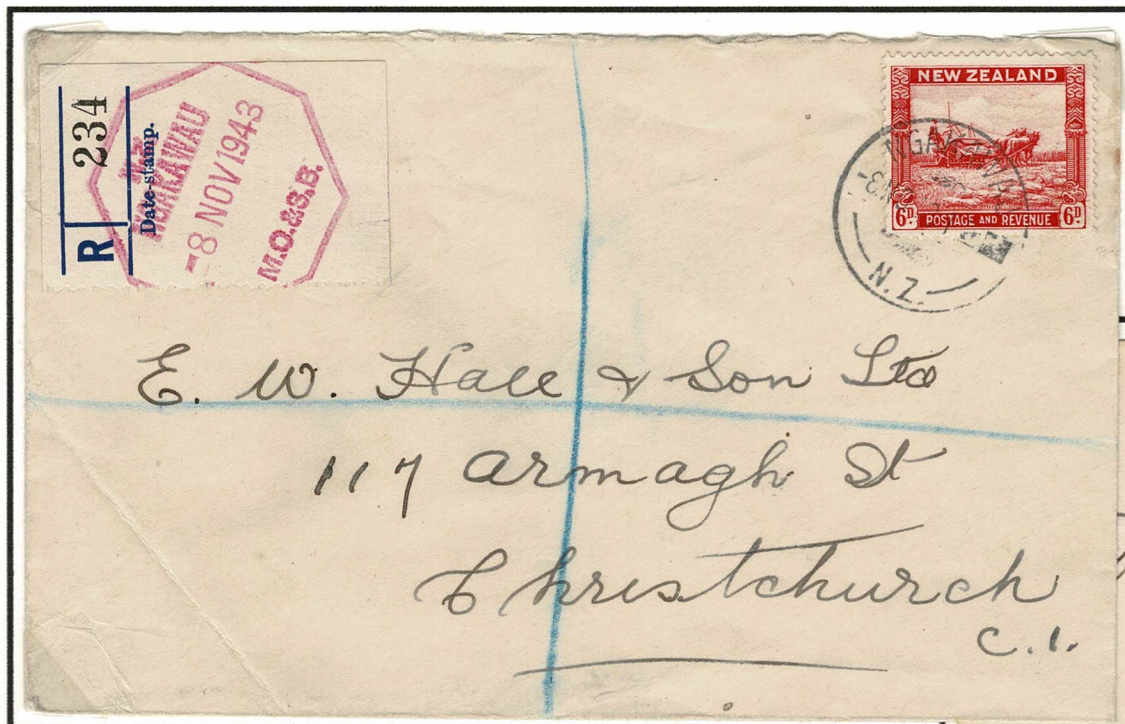 R 234
Date-stamp.
N.Z.
NGAKAWAU
-8 NOV 1943
M.O.&S.B.
NEW ZEALAND
6D. POSTAGE AND REVENUE 6D.
N.Z.
E. W. Hall & Son Ltd
117 Armagh St
Christchurch
C.1.